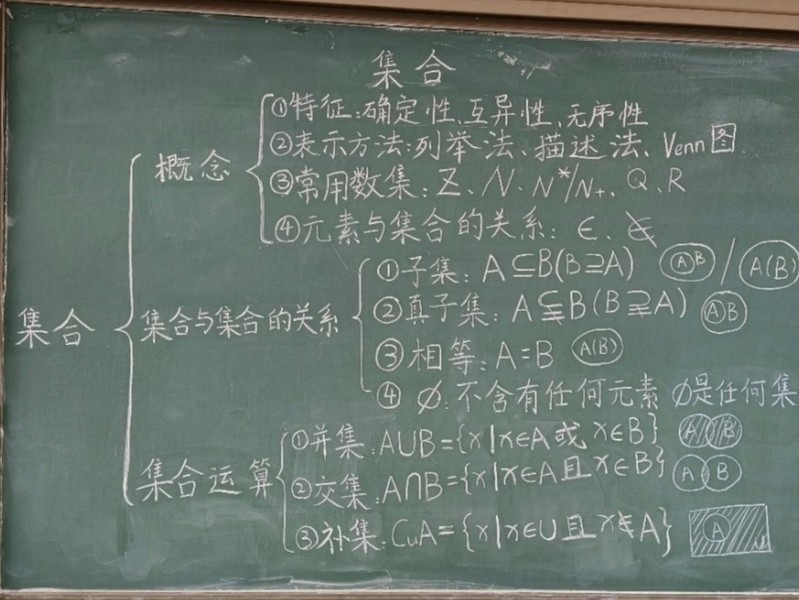 集合
概念
①特征:确定性、互异性、无序性
②表示方法:列举法、描述法、Venn图
③常用数集:Z、N、N*/N+、Q、R
④元素与集合的关系:∈、∉
集合
集合与集合的关系
①子集:A⊆B(B⊇A) A B / A(B)
②真子集:A⫋B(B⫌A) A B
③相等:A=B A(B)
④ ∅:不含有任何元素 ∅是任何集
集合运算
①并集:A∪B={x|x∈A或x∈B} A B
②交集:A∩B={x|x∈A且x∈B} A B
③补集:CuA={x|x∈U且x∉A} A U